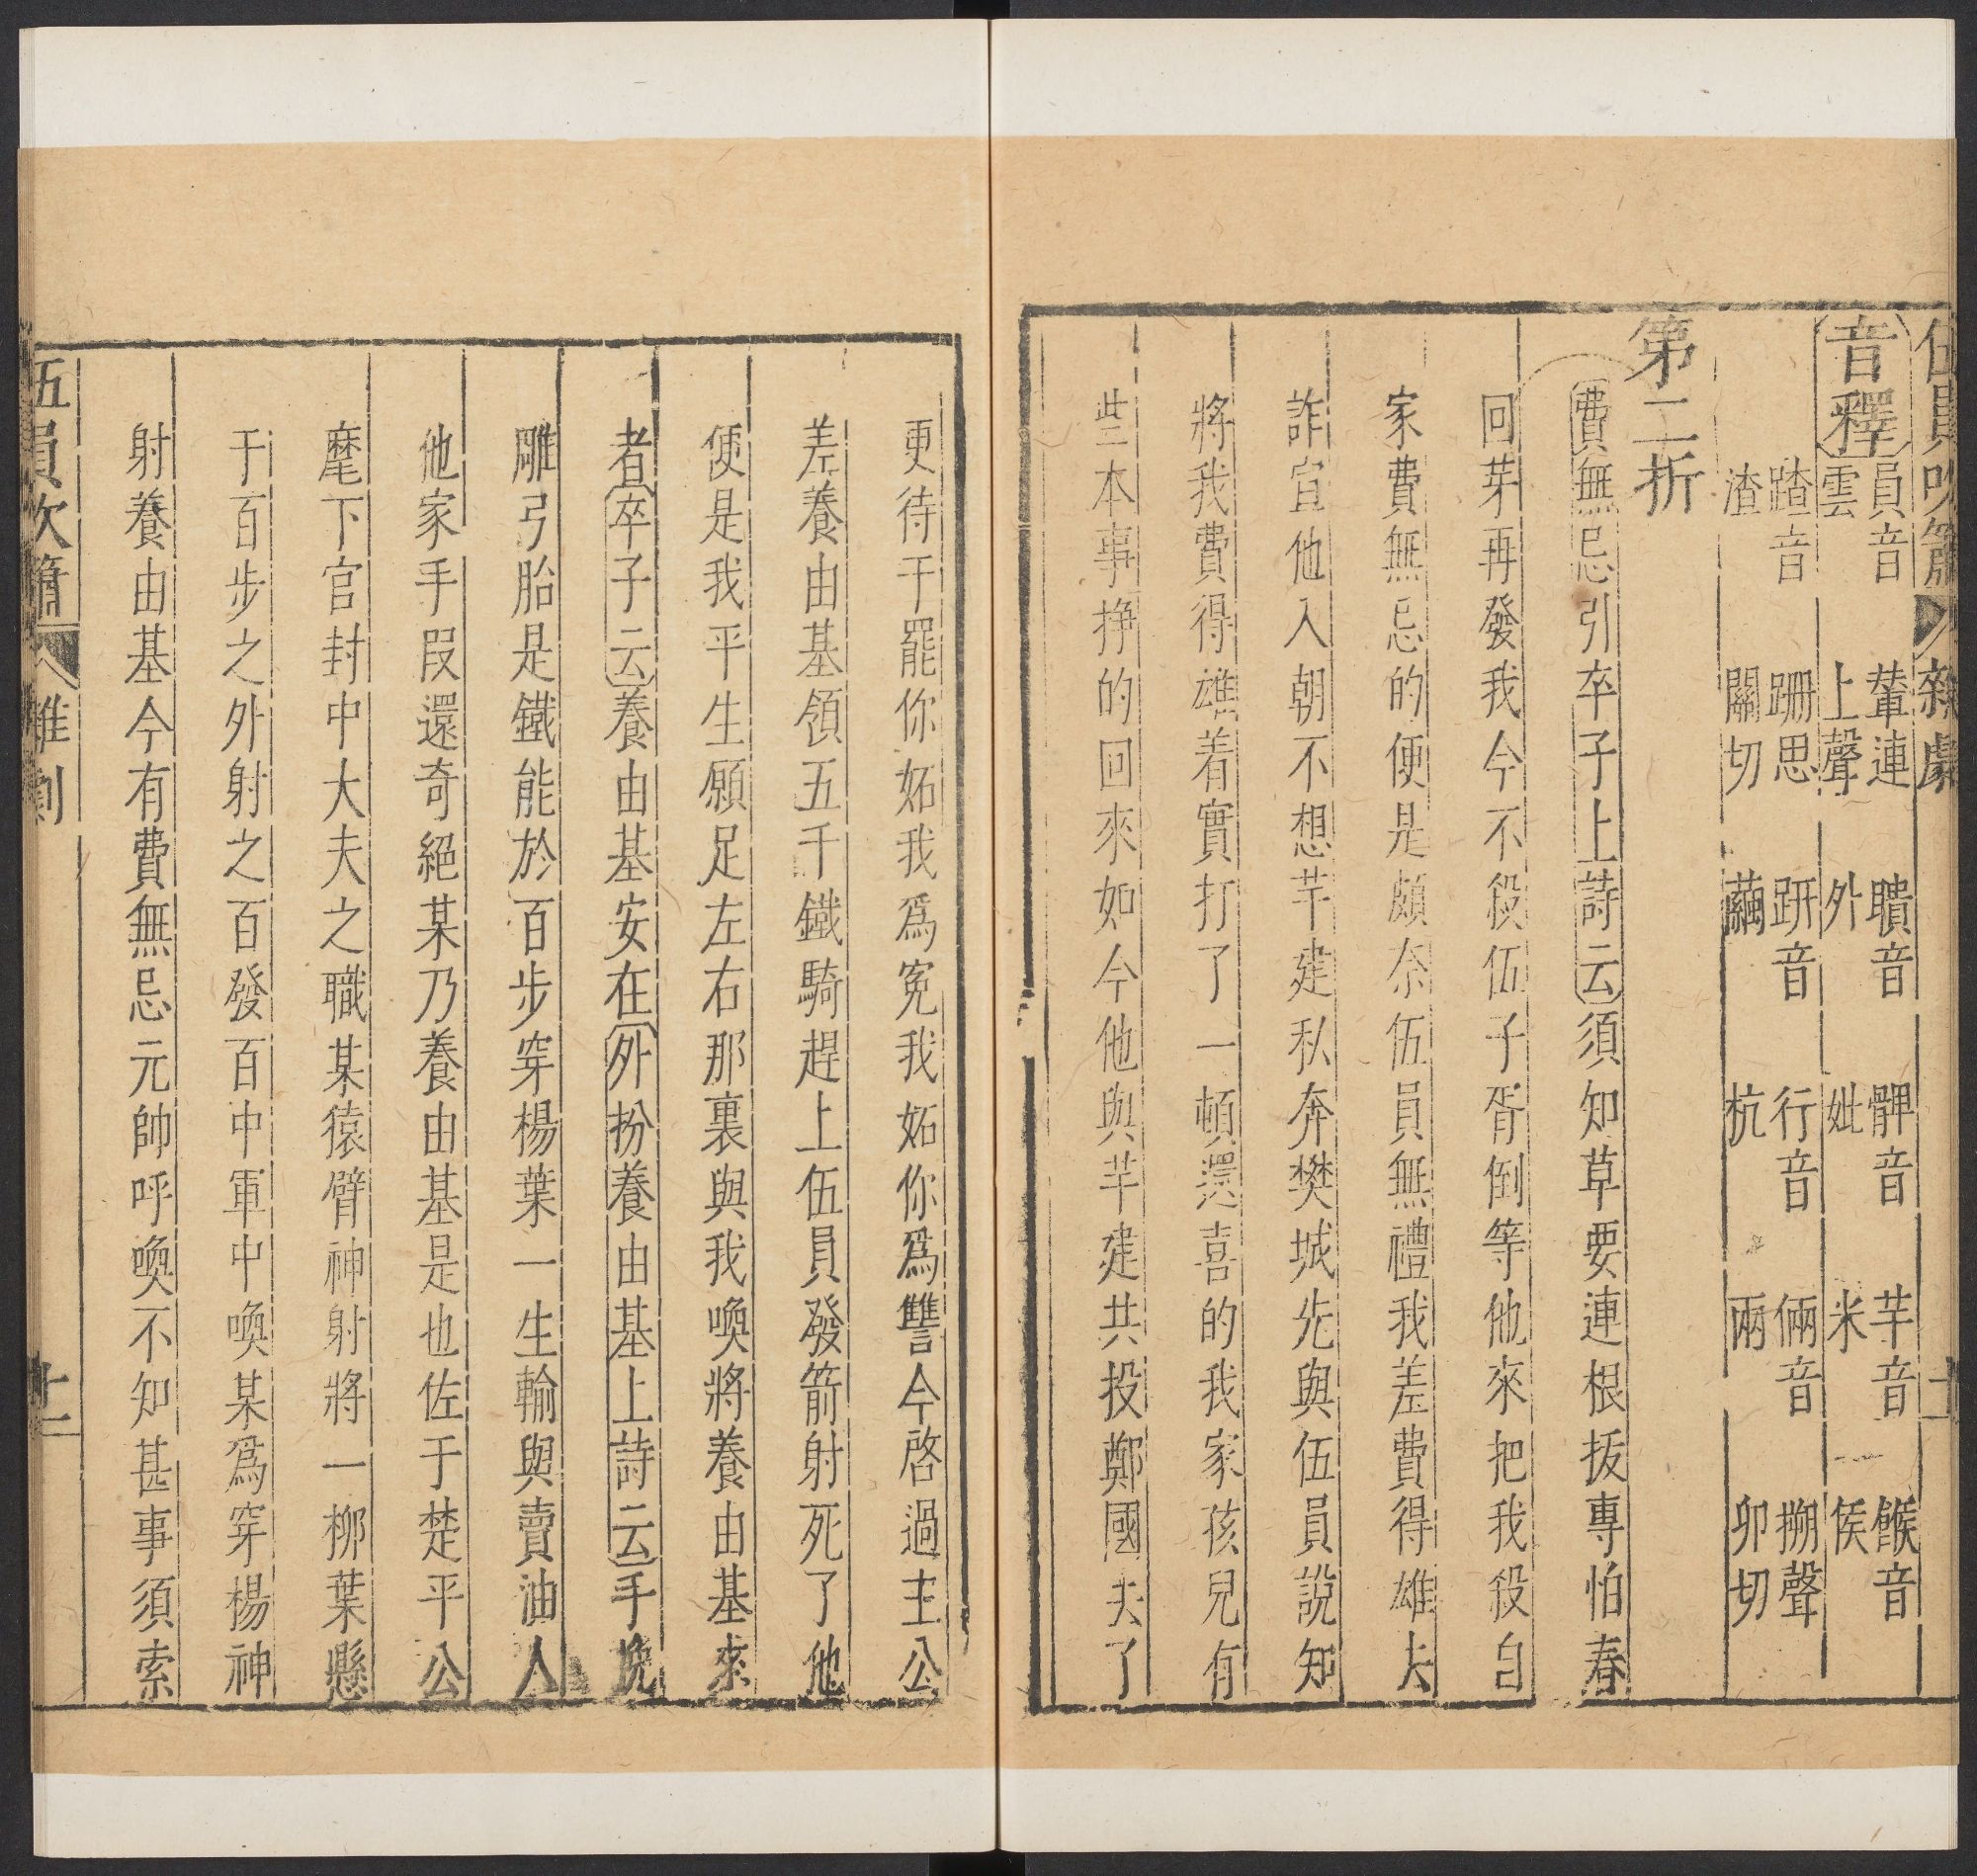 伍員吹簫 雜劇
音釋 員音雲 輦連上聲 聵音外 髀音妣 芊音米 餱音侯
蹅音渣 跚思關切 趼音繭 行音杭 倆音兩 搠聲卯切
第二折
費無忌引卒子上詩云須知草要連根拔專怕春
回芽再發我今不殺伍子胥倒等他來把我殺自
家費無忌的便是頗奈伍員無禮我差費得雄去
詐宣他入朝不想芊建私奔樊城先與伍員說知
將我費得雄着實打了一頓還喜的我家孩兒有
些本事掙的回來如今他與芊建共投鄭國去了
更待干罷你妬我爲寃我妬你爲讐今啓過主公
差養由基領五千鐵騎趕上伍員發箭射死了他
便是我平生願足左右那裏與我喚將養由基來
者卒子云養由基安在外扮養由基上詩云手挽
雕弓胎是鐵能於百步穿楊葉一生輸與賣油人
他家手段還奇絕某乃養由基是也佐于楚平公
麾下官封中大夫之職某猿臂神射將一柳葉懸
于百步之外射之百發百中軍中喚某爲穿楊神
射養由基今有費無忌元帥呼喚不知甚事須索
伍員吹簫 雜劇 十一